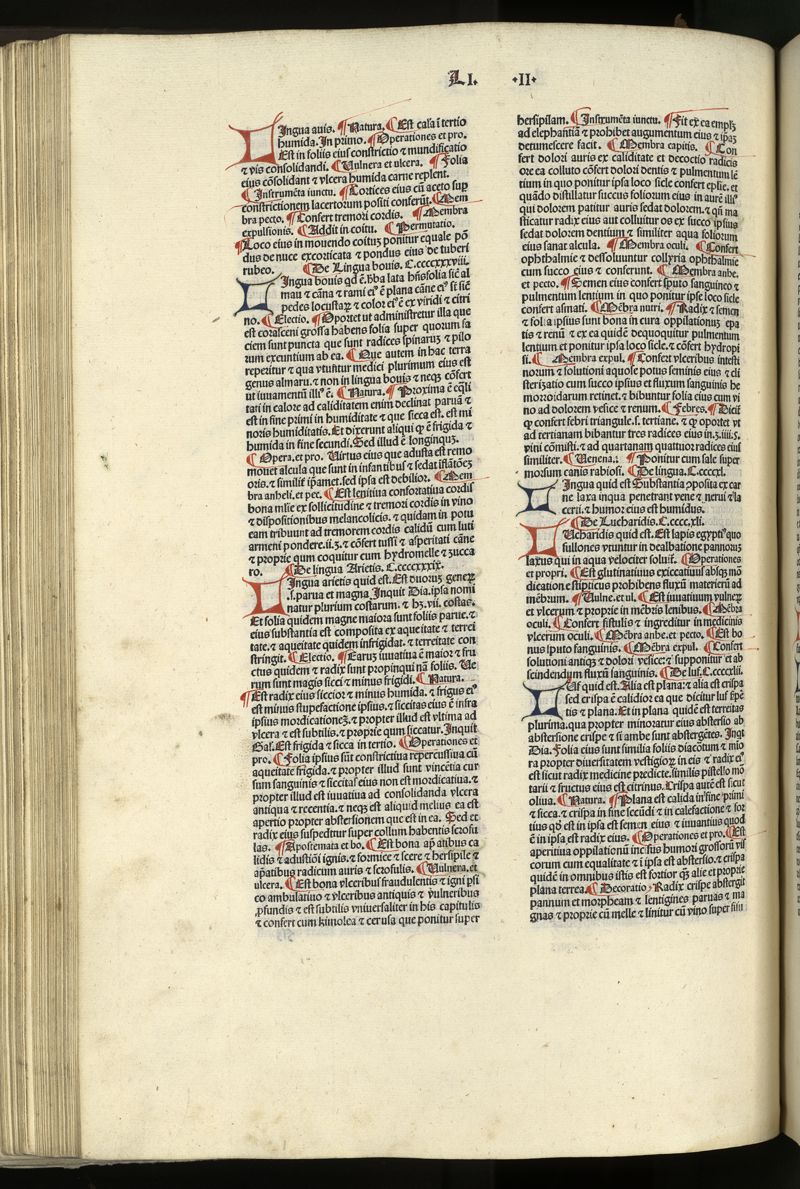 LI. ·II·
Lingua auis. ¶Natura. ¶Est cala ī tertio
humida. In primo. ¶Operationes et pro.
Est in foliis eius constrictio ⁊ mundificatio
⁊ vis consolidandi. ¶Vulnera et ulcera. ¶Folia
eius cōsolidant ⁊ vlcera humida carne replent.
¶Instrumēta iunctu. ¶Cortices eius cū aceto sup
constrictionem lacertorum positi conferūt. ¶Mem
bra pecto. ¶Confert tremori cordis. ¶Membra
expulsionis. ¶Addit in coitu. ¶Permutatio.
¶Loco eius in mouendo coituȝ ponitur equale pō
dus de nuce excorticata ⁊ pondus eius de tuberi
rubeo. ¶De Lingua bouis. C.ccccxxxviii.
Lingua bouis qd ē. hba lata hn̄s folia sic̄ al
mau ⁊ cāna ⁊ rami eiꝰ ē plana cāne eiꝰ sic̄ sint
pedes locustaꝝ ⁊ color eiꝰ ē ex viridi ⁊ citri
no. ¶Electio. ¶Oportet ut administretur illa que
est corasceni grossa habens folia super quorum fa
ciem sunt puncta que sunt radices spinaruȝ ⁊ pilo
rum exeuntium ab ea. ¶Que autem in hac terra
reperitur ⁊ qua vtuntur medici plurimum eius est
genus almaru. ⁊ non in lingua bouis ⁊ neqȝ cōfert
ut iuuamentū illiꝰ ē. ¶Natura. ¶Proxima ē eq̄li
tati in calore ad caliditatem enim declinat paruā ⁊
est in fine primi in humiditate ⁊ que sicca est. est mi
noris humiditatis. Et dixerunt aliqui ꝙ ē frigida ⁊
humida in fine secundi. Sed illud ē longinquȝ.
¶Opera. et pro. Virtus eius que adusta est remo
mouet alcula que sunt in infantibus ⁊ sedat īflatōeȝ
oris. ⁊ similiter ip̄amet. sed ipsa est debilior. ¶Mem
bra anheli. et pec. ¶Est lenitiua confortatiua cordis
bona mltie ex sollicitudine ⁊ tremori cordis in vino
⁊ dispositionibus melancolicis. ⁊ quidam in potu
eam tribuunt ad tremorem cordis calidū cum luti
armeni pondere. ii.ʒ. ⁊ cōfert tussi ⁊ asperitati cāne
⁊ proprie qum coquitur cum hydromelle ⁊ zucca
ro. ¶De lingua Arietis. C.ccccxxxix.
Lingua arietis quid est. Est duoruȝ generꝝ
.s. parua et magna. Inquit Dia. ipsa nomi
natur plurium costarum. ⁊ hȝ. vii. costas.
Et folia quidem magne maiora sunt foliis parue. ⁊
eius substantia est composita ex aqueitate ⁊ terrei
tate. ⁊ aqueitate quidem infrigidat. ⁊ terreitate con
stringit. ¶Electio. ¶Earuȝ iuuatiua ē maior ⁊ fru
ctus quidem ⁊ radix sunt propinqui nā foliis. Ve
rum sunt magis sicci ⁊ minus frigidi. ¶Natura.
¶Est radix eius siccior ⁊ minus humida. ⁊ frigus eiꝰ
est minus stupefactione ipsius. ⁊ siccitas eius ē infra
ipsius mordicationeȝ. ⁊ propter illud est vltima ad
vlcera ⁊ est subtilis. ⁊ proprie qum siccatur. Inquit
Gal. Est frigida ⁊ sicca in tertio. ¶Operationes et
pro. ¶Folia ipsius sūt constrictiua repercussiua cū
aqueitate frigida. ⁊ propter illud sunt vincētia cur
sum sanguinis ⁊ siccitas eius non est mordicatiua. ⁊
propter illud est iuuatiua ad consolidanda vlcera
antiqua ⁊ recentia. ⁊ neqȝ est aliquid melius ea est
apertio propter abstersionem que est in ea. Sed et
radix eius suspeditur super collum habentis scrofu
las. ¶Apostemata et bo. ¶Est bona ap̄atibus ca
lidis ⁊ adustiōi ignis. ⁊ formice ⁊ scere ⁊ hersipile ⁊
ap̄atibus radicum auris ⁊ scrofulis. ¶Vulnera. et
ulcera. ¶Est bona vlceribus fraudulentis ⁊ igni psi
co ambulatiuo ⁊ vlceribus antiquis ⁊ vulneribus
ꝓfundis ⁊ est subtilis vniuersaliter in his capitulis
⁊ confert cum kimolea ⁊ cerusa que ponitur super
hersipilam. ¶Instrumēta iunctu. ¶Fit ex ea emplȝ
ad elephantiā ⁊ prohibet augumentum eius ⁊ ip̄aȝ
detumescere facit. ¶Membra capitis. ¶Con
fert dolori auris ex caliditate et decoctio radicis
ore ea colluto cōfert dolori dentis ⁊ pulmentum lē
tium in quo ponitur ipsa loco sicle confert eplie. et
quādo distillatur succus foliorum eius in aure illiꝰ
qui dolorem patitur auris sedat dolorem. ⁊ qn̄ ma
sticatur radix eius aut colluitur os ex succo ipsius
sedat dolorem dentium ⁊ similiter aqua foliorum
eius sanat alcula. ¶Membra oculi. ¶Confert
ophthalmie ⁊ dessoluuntur collyria ophthalmie
cum succo eius ⁊ conferunt. ¶Membra anhe.
et pecto. ¶Semen eius confert sputo sanguineo ⁊
pulmentum lentium in quo ponitur ipse loco sicle
confert asmati. ¶Mēbra nutri. ¶Radix ⁊ semen
⁊ folia ipsius sunt bona in cura oppilationuȝ epa
tis ⁊ renū ⁊ ex ea quidē dequoquitur pulmentum
lentium et ponitur ipsa loco sicle. ⁊ cōfert hydropi
si. ¶Membra expul. ¶Confert vlceribus intesti
norum ⁊ solutioni aquose potus seminis eius ⁊ cli
sterizatio cum succo ipsius et fluxum sanguinis he
morroidarum retinet. ⁊ bibuntur folia eius cum vi
no ad dolorem vesice ⁊ renum. ¶Febres. ¶Dicit
ꝙ confert febri triangule. s. tertiane. ⁊ ꝙ oportet vt
ad tertianam bibantur tres radices eius in.ʒ.iiii.s.
vini cōmisti. ⁊ ad quartanam quattuor radices eius
similiter. ¶Venena.: ¶Ponitur cum sale super
morsum canis rabiosi. ¶De lingua. C.ccccxl.
Lingua quid est Substantia ꝓposita ex car
ne laxa inqua penetrant vene ⁊ nerui ⁊ la
certi. ⁊ humor eius est humidus.
¶De Lucharidis. C.cccc.xli.
Lucharidis quid est. Est lapis egyptiꝰ quo
fullones vtuntur in dealbatione pannoruȝ
laxus qui in aqua velociter soluit̄. ¶Operationes
et propri. ¶Est glutinatiuus exiccatiuus absqȝ mō
dicatione stipticus prohibens fluxū materierū ad
mēbrum. ¶Vulne. et ul. ¶Est iuuatiuum vulneꝝ
et vlcerum ⁊ proprie in mēbris lenibus. ¶Mēbra
oculi. ¶Confert fistulis ⁊ ingreditur in medicinis
vlcerum oculi. ¶Mēbra anhe. et pecto. ¶Est bo
nus sputo sanguinis. ¶Mēbra expul. ¶Confert
solutioni antiqȝ ⁊ dolori vesice: ⁊ supponitur ei ab
scindendum fluxū sanguinis. ¶De luf. C.ccccxlii.
Luf quid est. Alia est plana: ⁊ alia est crispa
sed crispa ē calidior ea que dicitur luf serpē
tis ⁊ plana. Et in plana quidē est terreitas
plurima. qua propter minoratur eius abstersio ab
abstersione crispe ⁊ si ambe sunt abstergētes. Inqt
Dia. Folia eius sunt similia foliis diacōtum ⁊ mino
ra propter diuersitatem vestigioꝝ in eis ⁊ radix eiꝰ
est sicut radix medicine predicte. similis pistello mō
tarii ⁊ fructus eius est citrinus. Crispa autē est sicut
oliua. ¶Natura. ¶Plana est calida in fine primi
⁊ sicca. ⁊ crispa in fine secūdi ⁊ in calefactione ⁊ for
tius qd̄ est in ipsa est semen eius ⁊ iuuantius quod
ē in ipsa est radix eius. ¶Operationes et pro. ¶Est
aperitiua oppilationū incisiua humori grossorū vis
corum cum equalitate ⁊ ī ipsa est abstersio. ⁊ crispa
quidē in omnibus istis est fortior qȝ alie et proprie
plana terrea. ¶Decoratio. Radix crispe abstergit
pannum et morpheam ⁊ lentigines paruas ⁊ ma
gnas ⁊ proprie cū melle ⁊ linitur cū vino super fissu